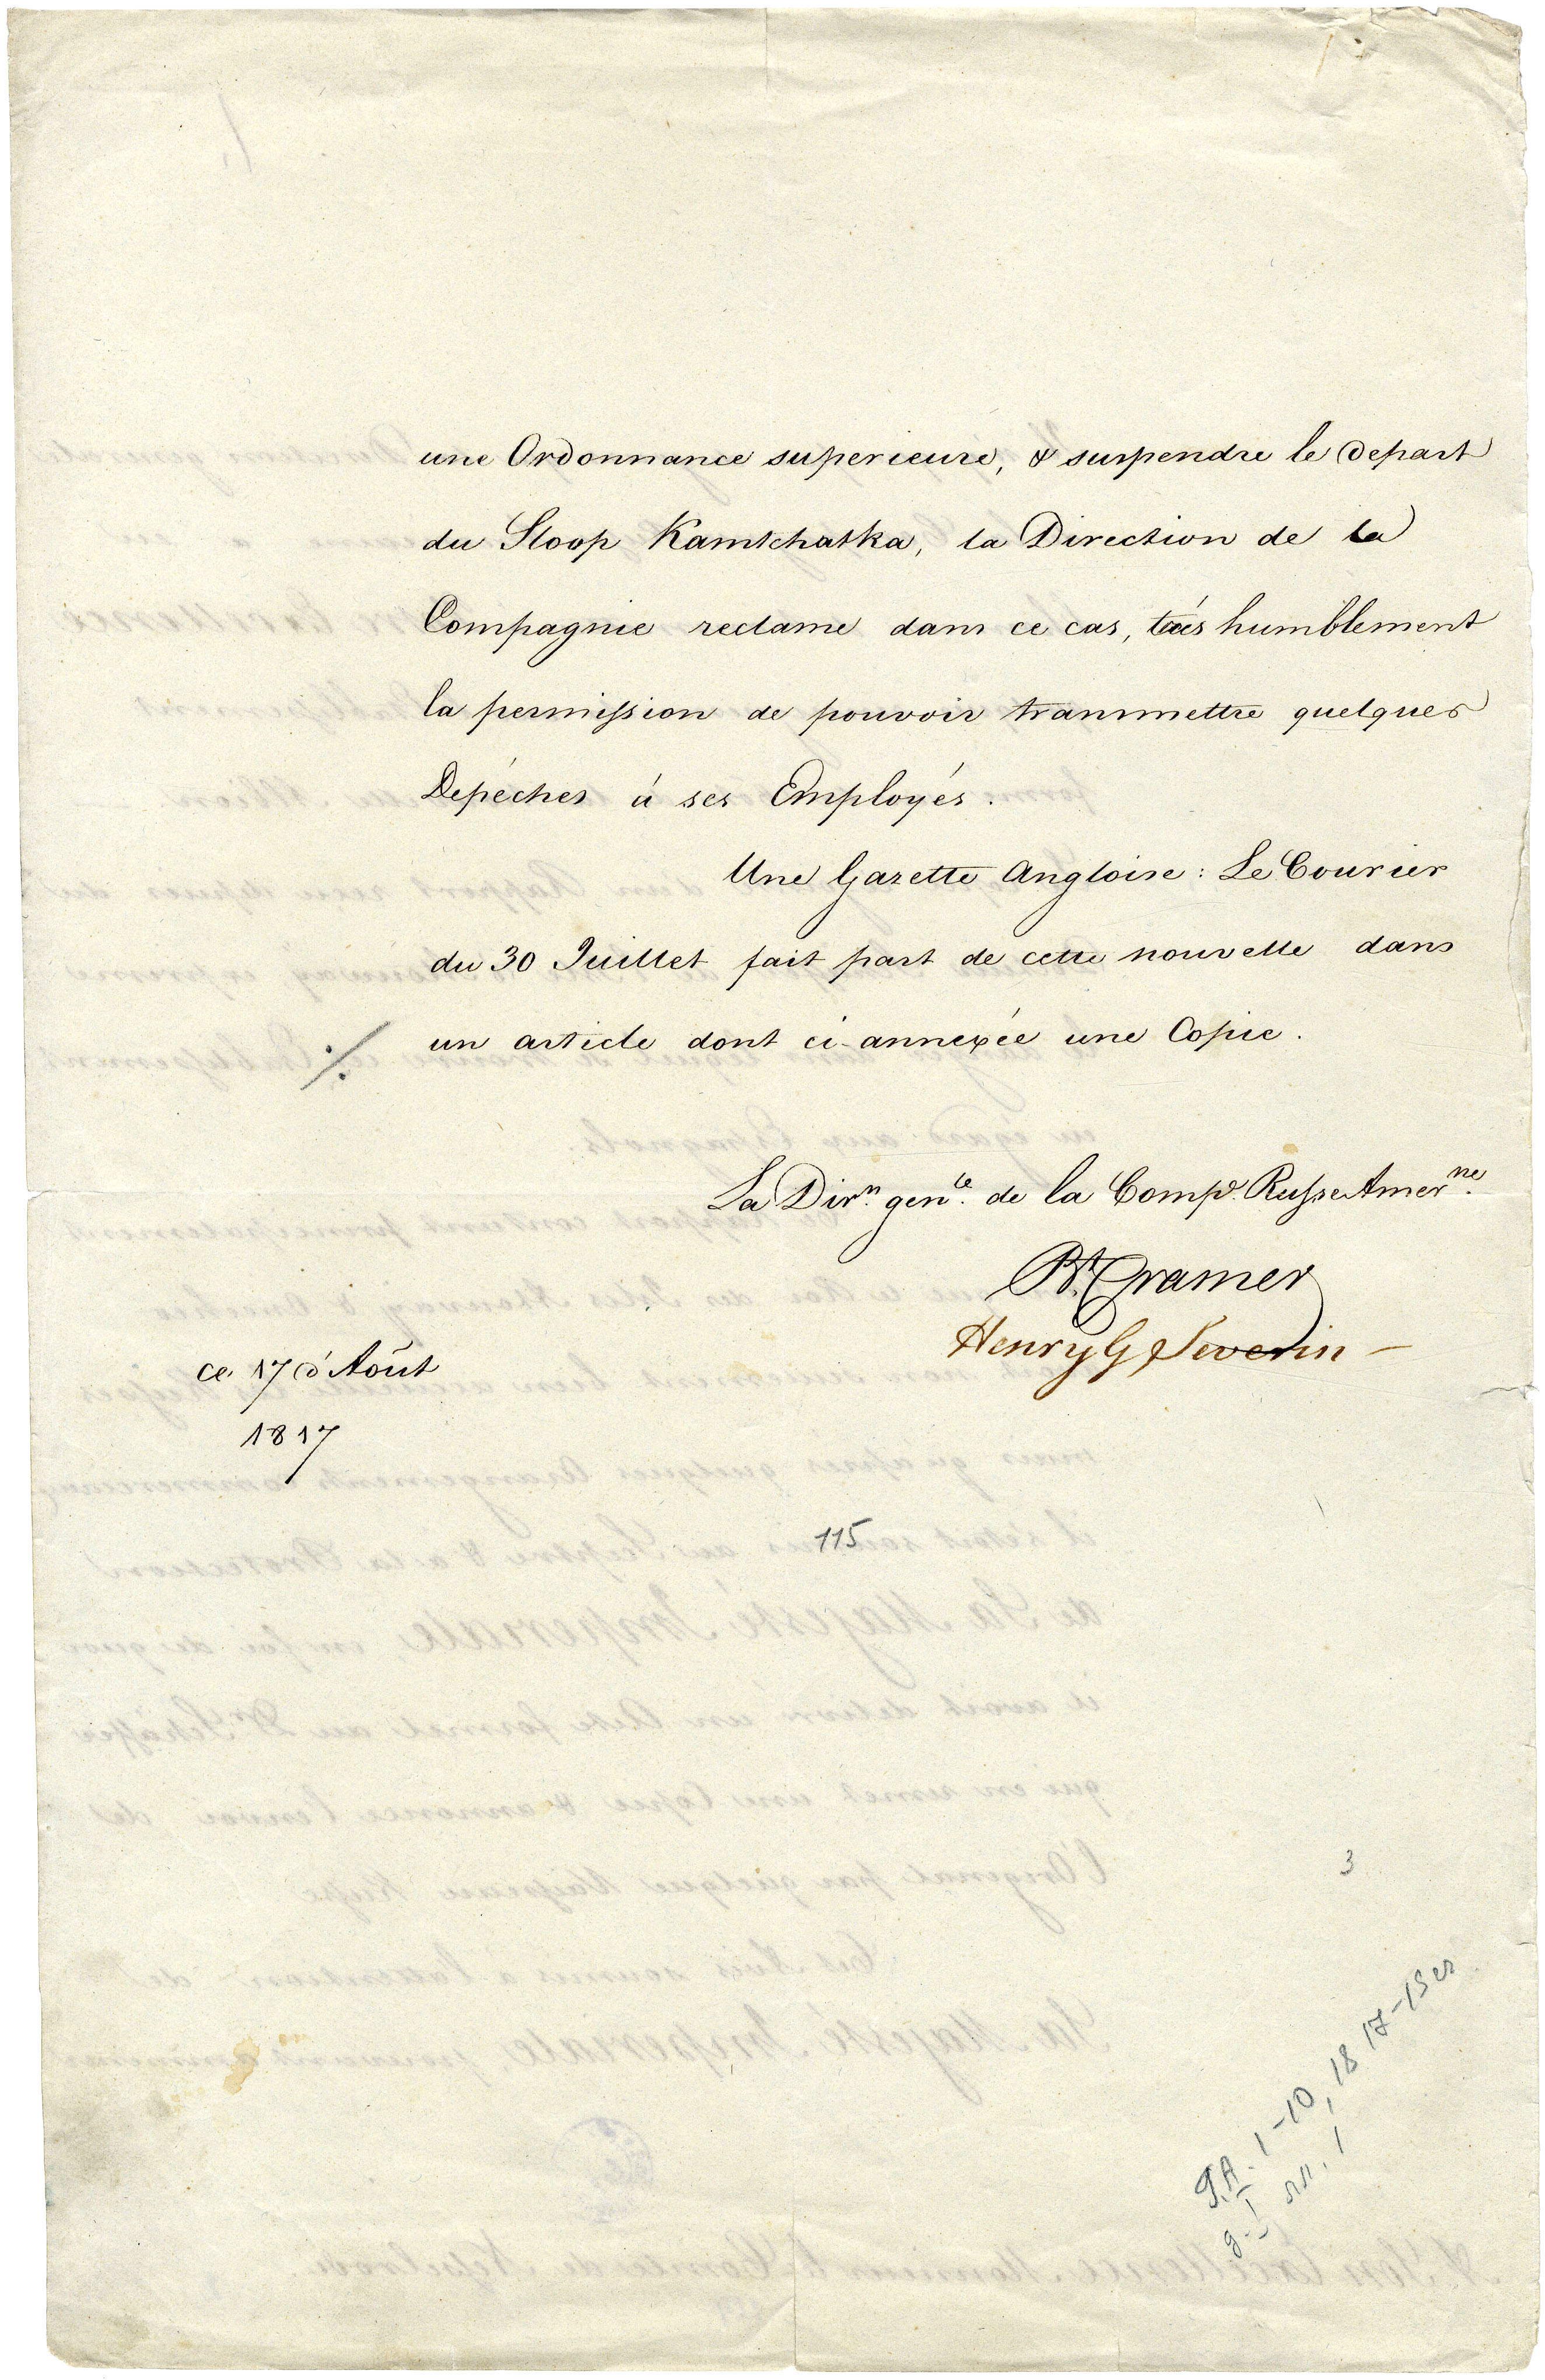 une Ordonnance superieure, & suspendre le depart
du Sloop Kamtchatka, la Direction de la
Compagnie reclame dans ce cas, trés humblement
la permission de pouvoir transmettre quelques
Depéches á ses Employés.
Une Gazette Angloise: Le Courier
du 30 Juillet fait part de cette nouvelle dans
un article dont ci-annexée une Copie.
La Dirn. genle. de la Compe. Russe Amerne.
Bt. Cramer
Henry G Severin –
ce 17 d'Août
1817
115
3
1-10, 1817-19
1